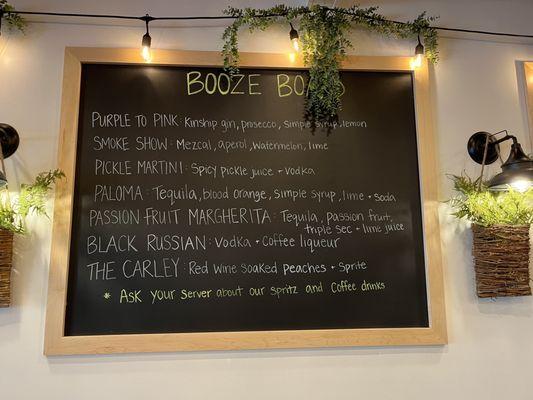 BOOZE BO
PURPLE TO PINK: Kinship gin, prosecco, simple syrup, lemon
SMOKE SHOW: Mezcal, aperol, Watermelon, lime
PICKLE MARTINI: Spicy pickle juice + vodka
PALOMA: Tequila, blood orange, simple syrup, lime + soda
PASSION FRUIT MARGHERITA: Tequila, passion fruit,
triple sec + lime juice
BLACK RUSSIAN: Vodka + Coffee liqueur
THE CARLEY: Red Wine Soaked Peaches + Sprite
* Ask your server about our spritz and Coffee drinks